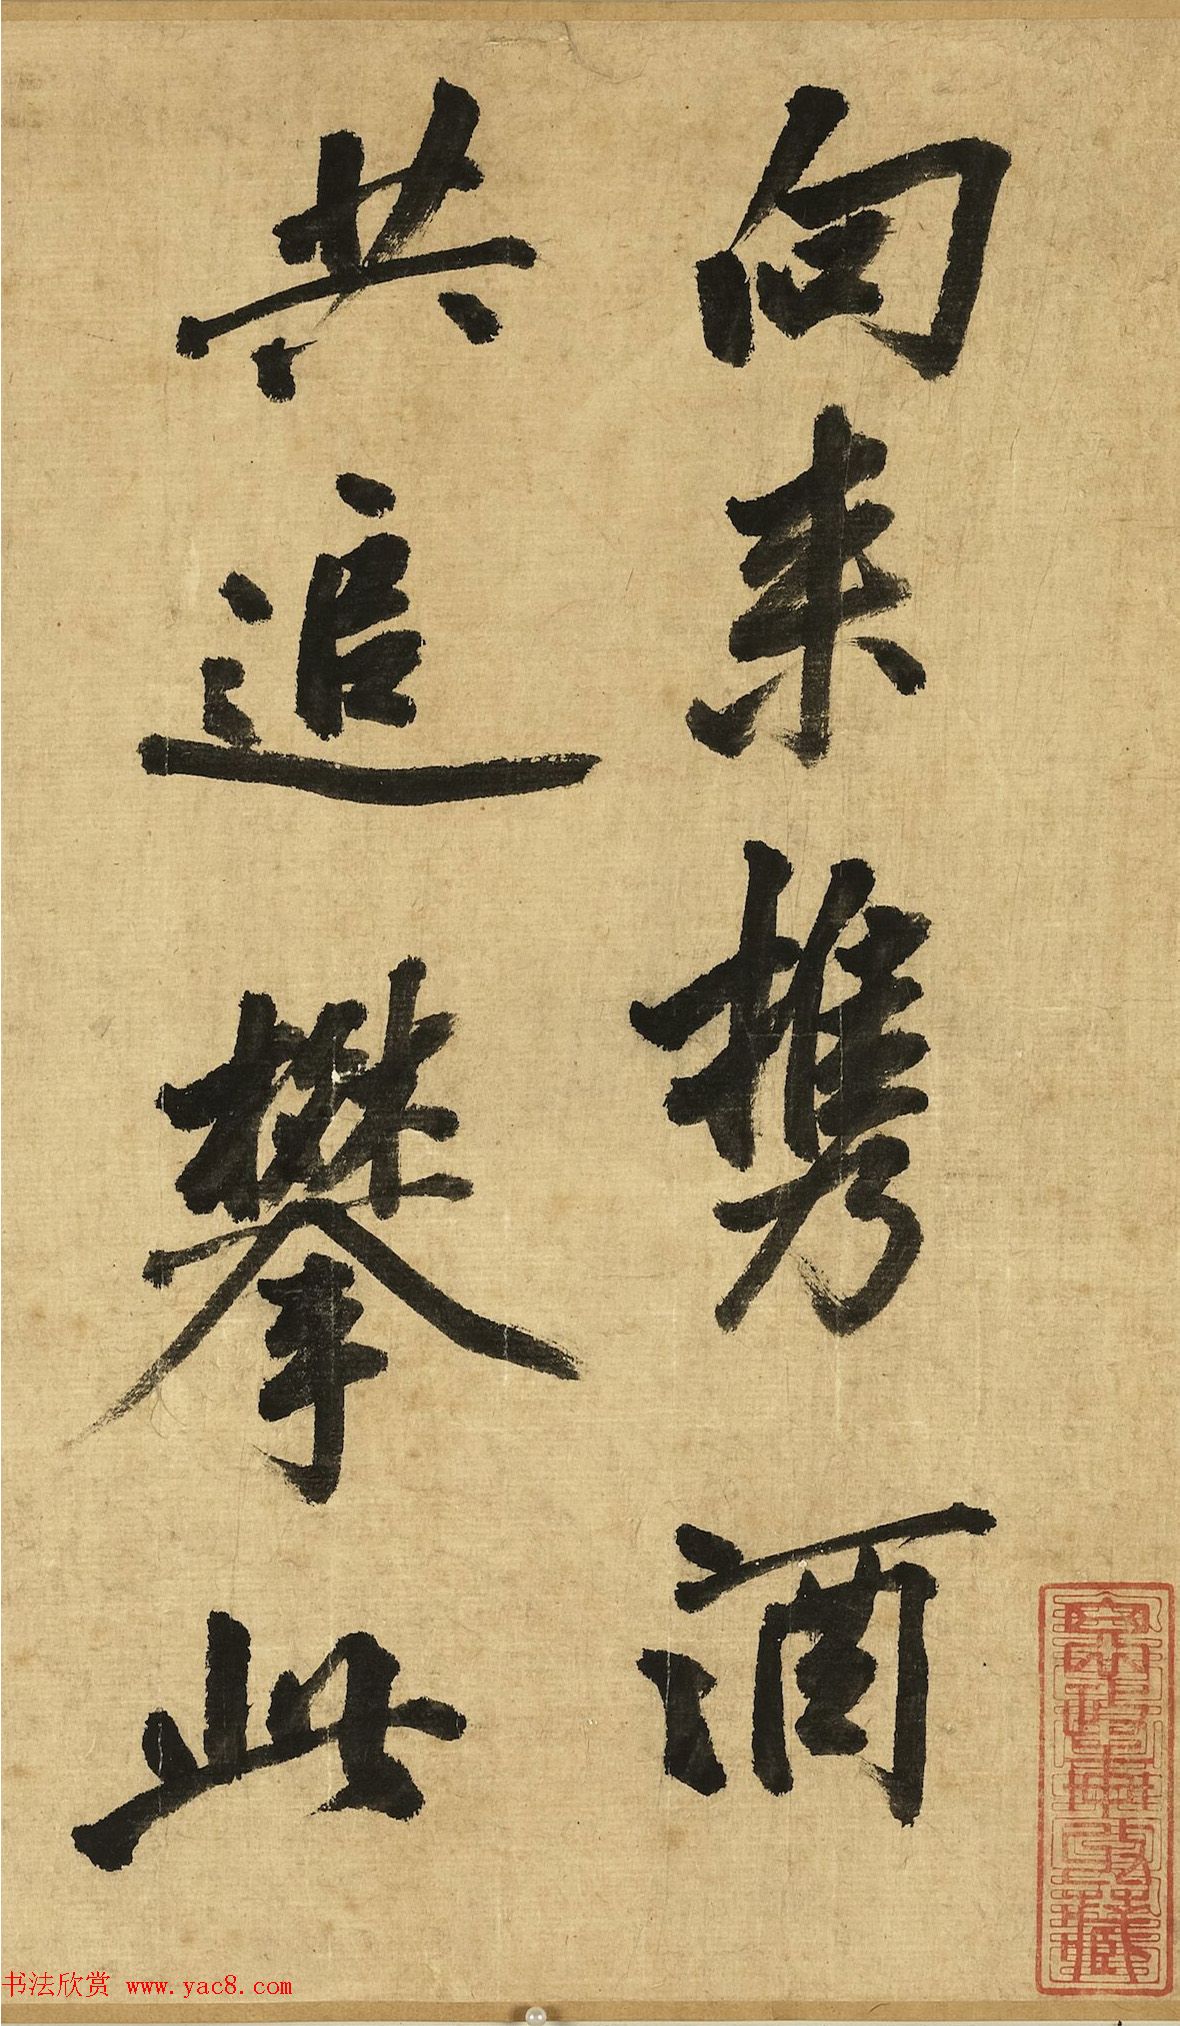 向来携酒
共追攀此
书法欣赏 www.yac8.com